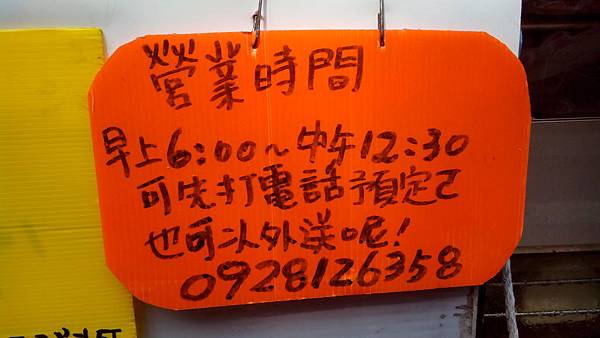 營業時間
早上6:00~中午12:30
可先打電話預定
也可以外送呢!
0928126358